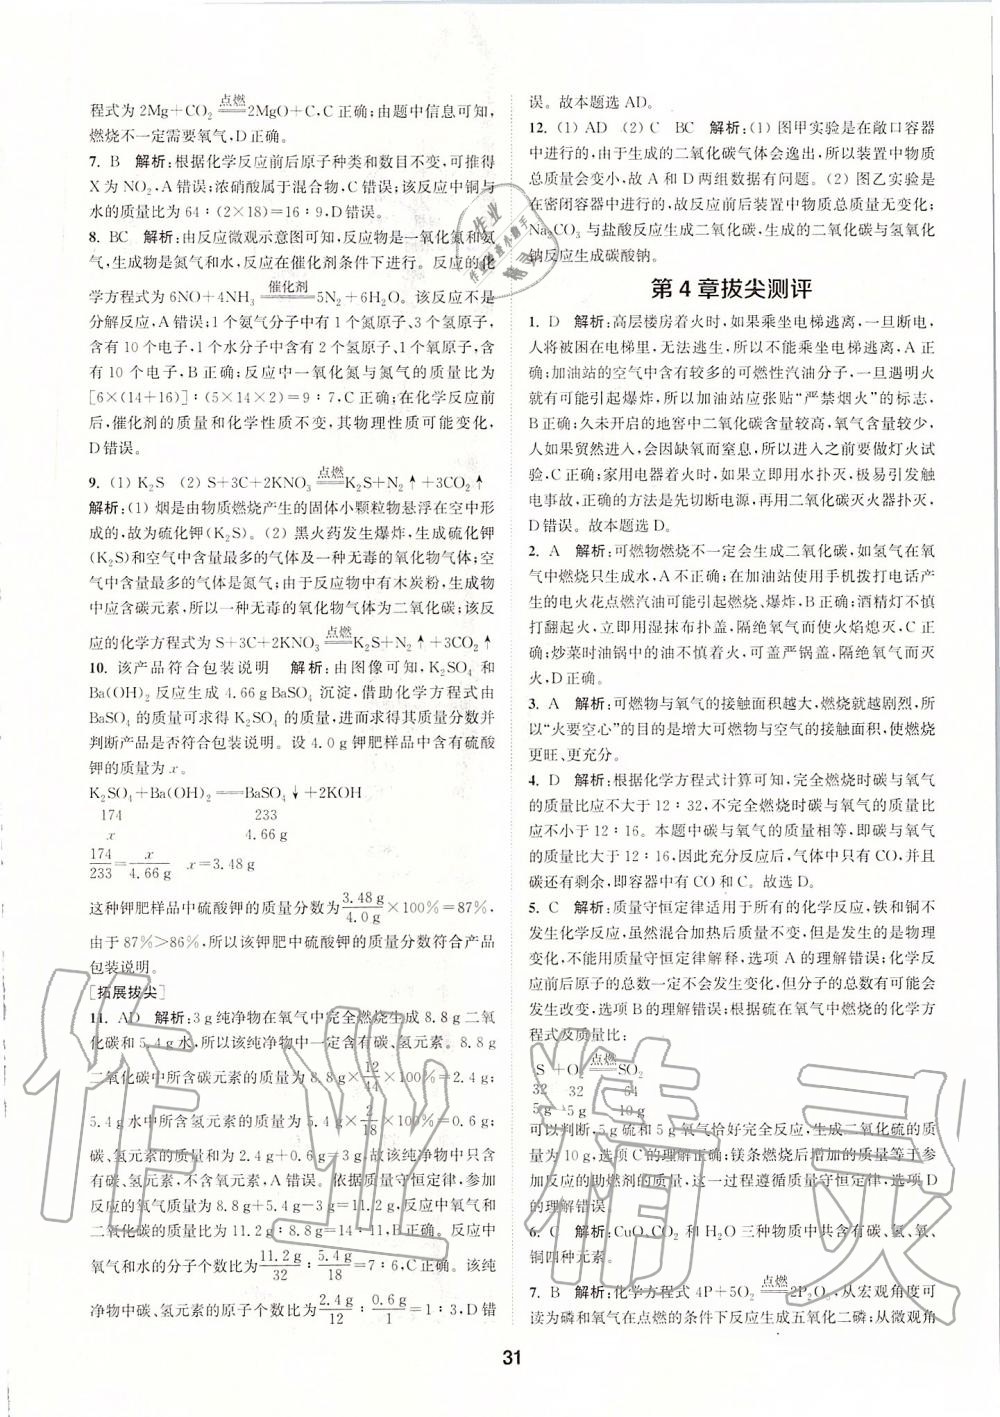 方程式为2Mg+CO₂ 点燃 2MgO+C,C正确;由题中信息可知,
燃烧不一定需要氧气,D正确。
7. B 解析:根据化学反应前后原子种类和数目不变,可推得
X为NO₂,A错误;浓硝酸属于混合物,C错误;该反应中铜与
水的质量比为64∶(2×18)=16∶9,D错误。
8. BC 解析:由反应微观示意图可知,反应物是一氧化氮和氨
气,生成物是氮气和水,反应在催化剂条件下进行。反应的化
学方程式为6NO+4NH₃ 催化剂 5N₂+6H₂O。该反应不是
分解反应,A错误;1个氨气分子中含有1个氮原子、3个氢原子,
含有10个电子,1个水分子中含有2个氢原子、1个氧原子,含
有10个电子,B正确;反应中一氧化氮与氮气的质量比为
[6×(14+16)]∶(5×14×2)=9∶7,C正确;在化学反应前
后,催化剂的质量和化学性质不变,其物理性质可能变化,
D错误。
9. (1) K₂S (2) S+3C+2KNO₃ 点燃 K₂S+N₂↑+3CO₂↑
解析:(1) 烟是由物质燃烧产生的固体小颗粒物悬浮在空中形
成的,故为硫化钾(K₂S)。(2) 黑火药发生爆炸,生成硫化钾
(K₂S)和空气中含量最多的气体及一种无毒的氧化物气体;空
气中含量最多的气体是氮气;由于反应物中有木炭粉,生成物
中应含碳元素,所以一种无毒的氧化物气体为二氧化碳;该反
应的化学方程式为S+3C+2KNO₃ 点燃 K₂S+N₂↑+3CO₂↑
10. 该产品符合包装说明 解析:由图像可知,K₂SO₄和
Ba(OH)₂反应生成4.66 g BaSO₄沉淀,借助化学方程式由
BaSO₄的质量可求得K₂SO₄的质量,进而求得其质量分数并
判断产品是否符合包装说明。设4.0 g钾肥样品中含有硫酸
钾的质量为x。
K₂SO₄+Ba(OH)₂══BaSO₄↓+2KOH
174 233
x 4.66 g
174/233=x/4.66 g x=3.48 g
这种钾肥样品中硫酸钾的质量分数为3.48 g/4.0 g×100%=87%,
由于87%>86%,所以该钾肥中硫酸钾的质量分数符合产品
包装说明。
[拓展拔尖]
11. AD 解析:3 g纯净物在氧气中完全燃烧生成8.8 g二氧
化碳和5.4 g水,所以该纯净物中一定含有碳、氢元素。8.8 g
二氧化碳中所含碳元素的质量为8.8 g×12/44×100%=2.4 g;
5.4 g水中所含氢元素的质量为5.4 g×2/18×100%=0.6 g;
碳、氢元素的质量和为2.4 g+0.6 g=3 g,故该纯净物中只含
有碳、氢元素,不含氧元素,A错误。依据质量守恒定律,参加
反应的氧气质量为8.8 g+5.4 g-3 g=11.2 g,反应中氧气和
二氧化碳的质量比为11.2 g∶8.8 g=14∶11,B正确。反应中
氧气和水的分子个数比为11.2 g/32∶5.4 g/18=7∶6,C正确。该纯
净物中碳、氢元素的原子个数比为2.4 g/12∶0.6 g/1=1∶3,D错
误。故本题选AD。
12. (1) AD (2) C BC 解析:(1) 图甲实验是在敞口容器
中进行的,由于生成的二氧化碳气体会逸出,所以装置中物质
总质量会变小,故A和D两组数据有问题。(2) 图乙实验是
在密闭容器中进行的,故反应前后装置中物质总质量无变化;
Na₂CO₃与盐酸反应生成二氧化碳,生成的二氧化碳与氢氧化
钠反应生成碳酸钠。
第4章拔尖测评
1. D 解析:高层楼房着火时,如果乘坐电梯逃离,一旦断电,
人将被困在电梯里,无法逃生,所以不能乘坐电梯逃离,A正
确;加油站的空气中含有较多的可燃性汽油分子,一旦遇明火
就有可能引起爆炸,所以加油站应张贴“严禁烟火”的标志,
B正确;久未开启的地窖中二氧化碳含量较高,氧气含量较少,
人如果贸然进入,会因缺氧而窒息,所以进入之前要做灯火试
验,C正确;家用电器着火时,如果立即用水扑灭,极易引发触
电事故,正确的方法是先切断电源,再用二氧化碳灭火器扑灭,
D错误。故本题选D。
2. A 解析:可燃物燃烧不一定会生成二氧化碳,如氢气在氧
气中燃烧只生成水,A不正确;在加油站使用手机拨打电话产
生的电火花点燃汽油可能引起燃烧、爆炸,B正确;酒精灯不慎
打翻起火,立即用湿抹布扑盖,隔绝氧气而使火焰熄灭,C正
确;炒菜时油锅中的油不慎着火,可盖严锅盖,隔绝氧气而灭
火,D正确。
3. A 解析:可燃物与氧气的接触面积越大,燃烧就越剧烈,所
以“火要空心”的目的是增大可燃物与空气的接触面积,使燃烧
更旺、更充分。
4. D 解析:根据化学方程式计算可知,完全燃烧时碳与氧气
的质量比应不大于12∶32,不完全燃烧时碳与氧气的质量比
应不小于12∶16。本题中碳与氧气的质量相等,即碳与氧气
的质量比大于12∶16,因此充分反应后,气体中只有CO,并且
碳还有剩余,即容器中有CO和C。故选D。
5. C 解析:质量守恒定律适用于所有的化学反应,铁和铜不
发生化学反应,虽然混合加热后质量不变,但是发生的是物理
变化,不能用质量守恒定律解释,选项A的理解错误;化学反
应前后原子的总数一定不会发生变化,但分子的总数有可能会
发生改变,选项B的理解错误;根据硫在氧气中燃烧的化学方
程式及质量比:
S + O₂ 点燃 SO₂
32 32 64
5 g 5 g 10 g
可以判断,5 g硫和5 g氧气恰好完全反应,生成二氧化硫的质
量为10 g,选项C的理解正确;镁条燃烧后增加的质量为参与
反应的助燃剂的质量,这一过程遵循质量守恒定律,选项D
的理解错误。
6. C 解析:CuO、CO₂和H₂O三种物质中共含有碳、氢、氧、
铜四种元素。
7. B 解析:化学方程式4P+5O₂ 点燃 2P₂O₅,从宏观角度可
读为磷和氧气在点燃的条件下反应生成五氧化二磷;从微观角
31
作业精灵